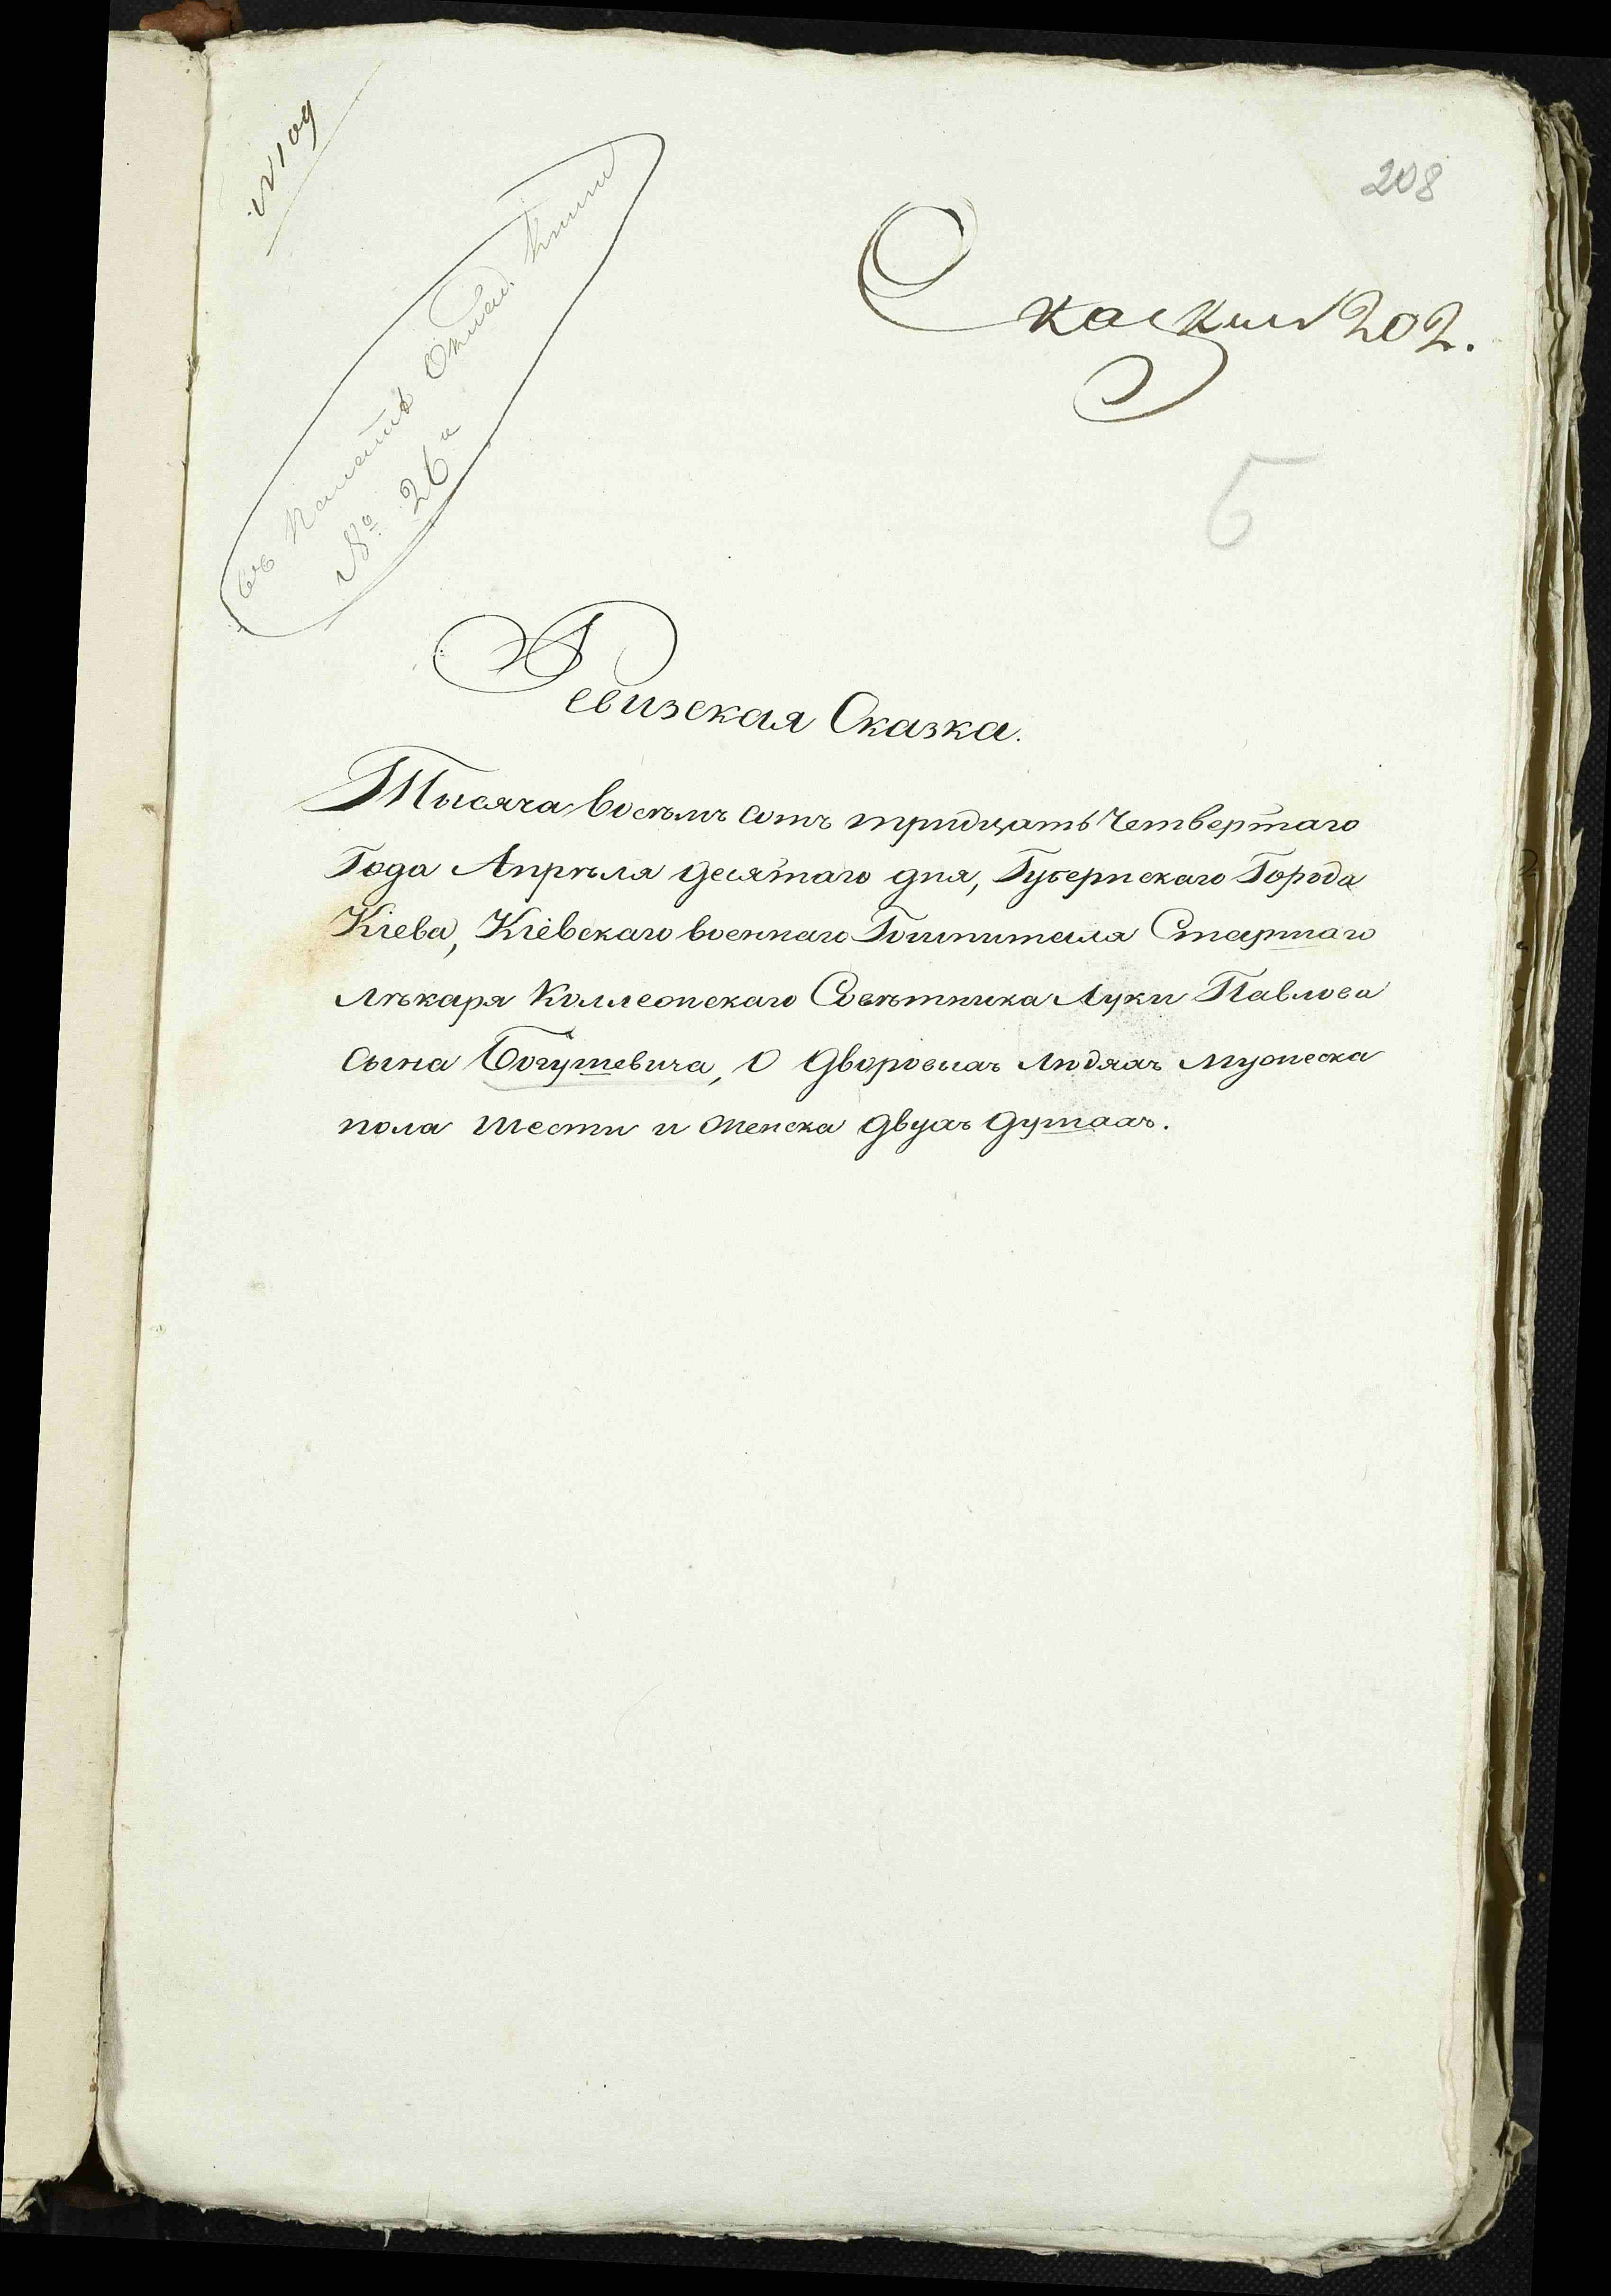 № 109
208
Сказки № 202.
въ Палатѣ
№ 26
5
Ревизская Сказка.
Тысяча восѣмъ сотъ тридцать Четвертаго
Года Апрѣля десятаго дня, Губернскаго Города
Кіева, Кіевскаго военнаго Гошпиталя Старшаго
Лѣкаря Коллежскаго Совѣтника Луки Павлова
сына Богушевича, О дворовыхъ Людяхъ мужеска
пола шести и женска двухъ душахъ.